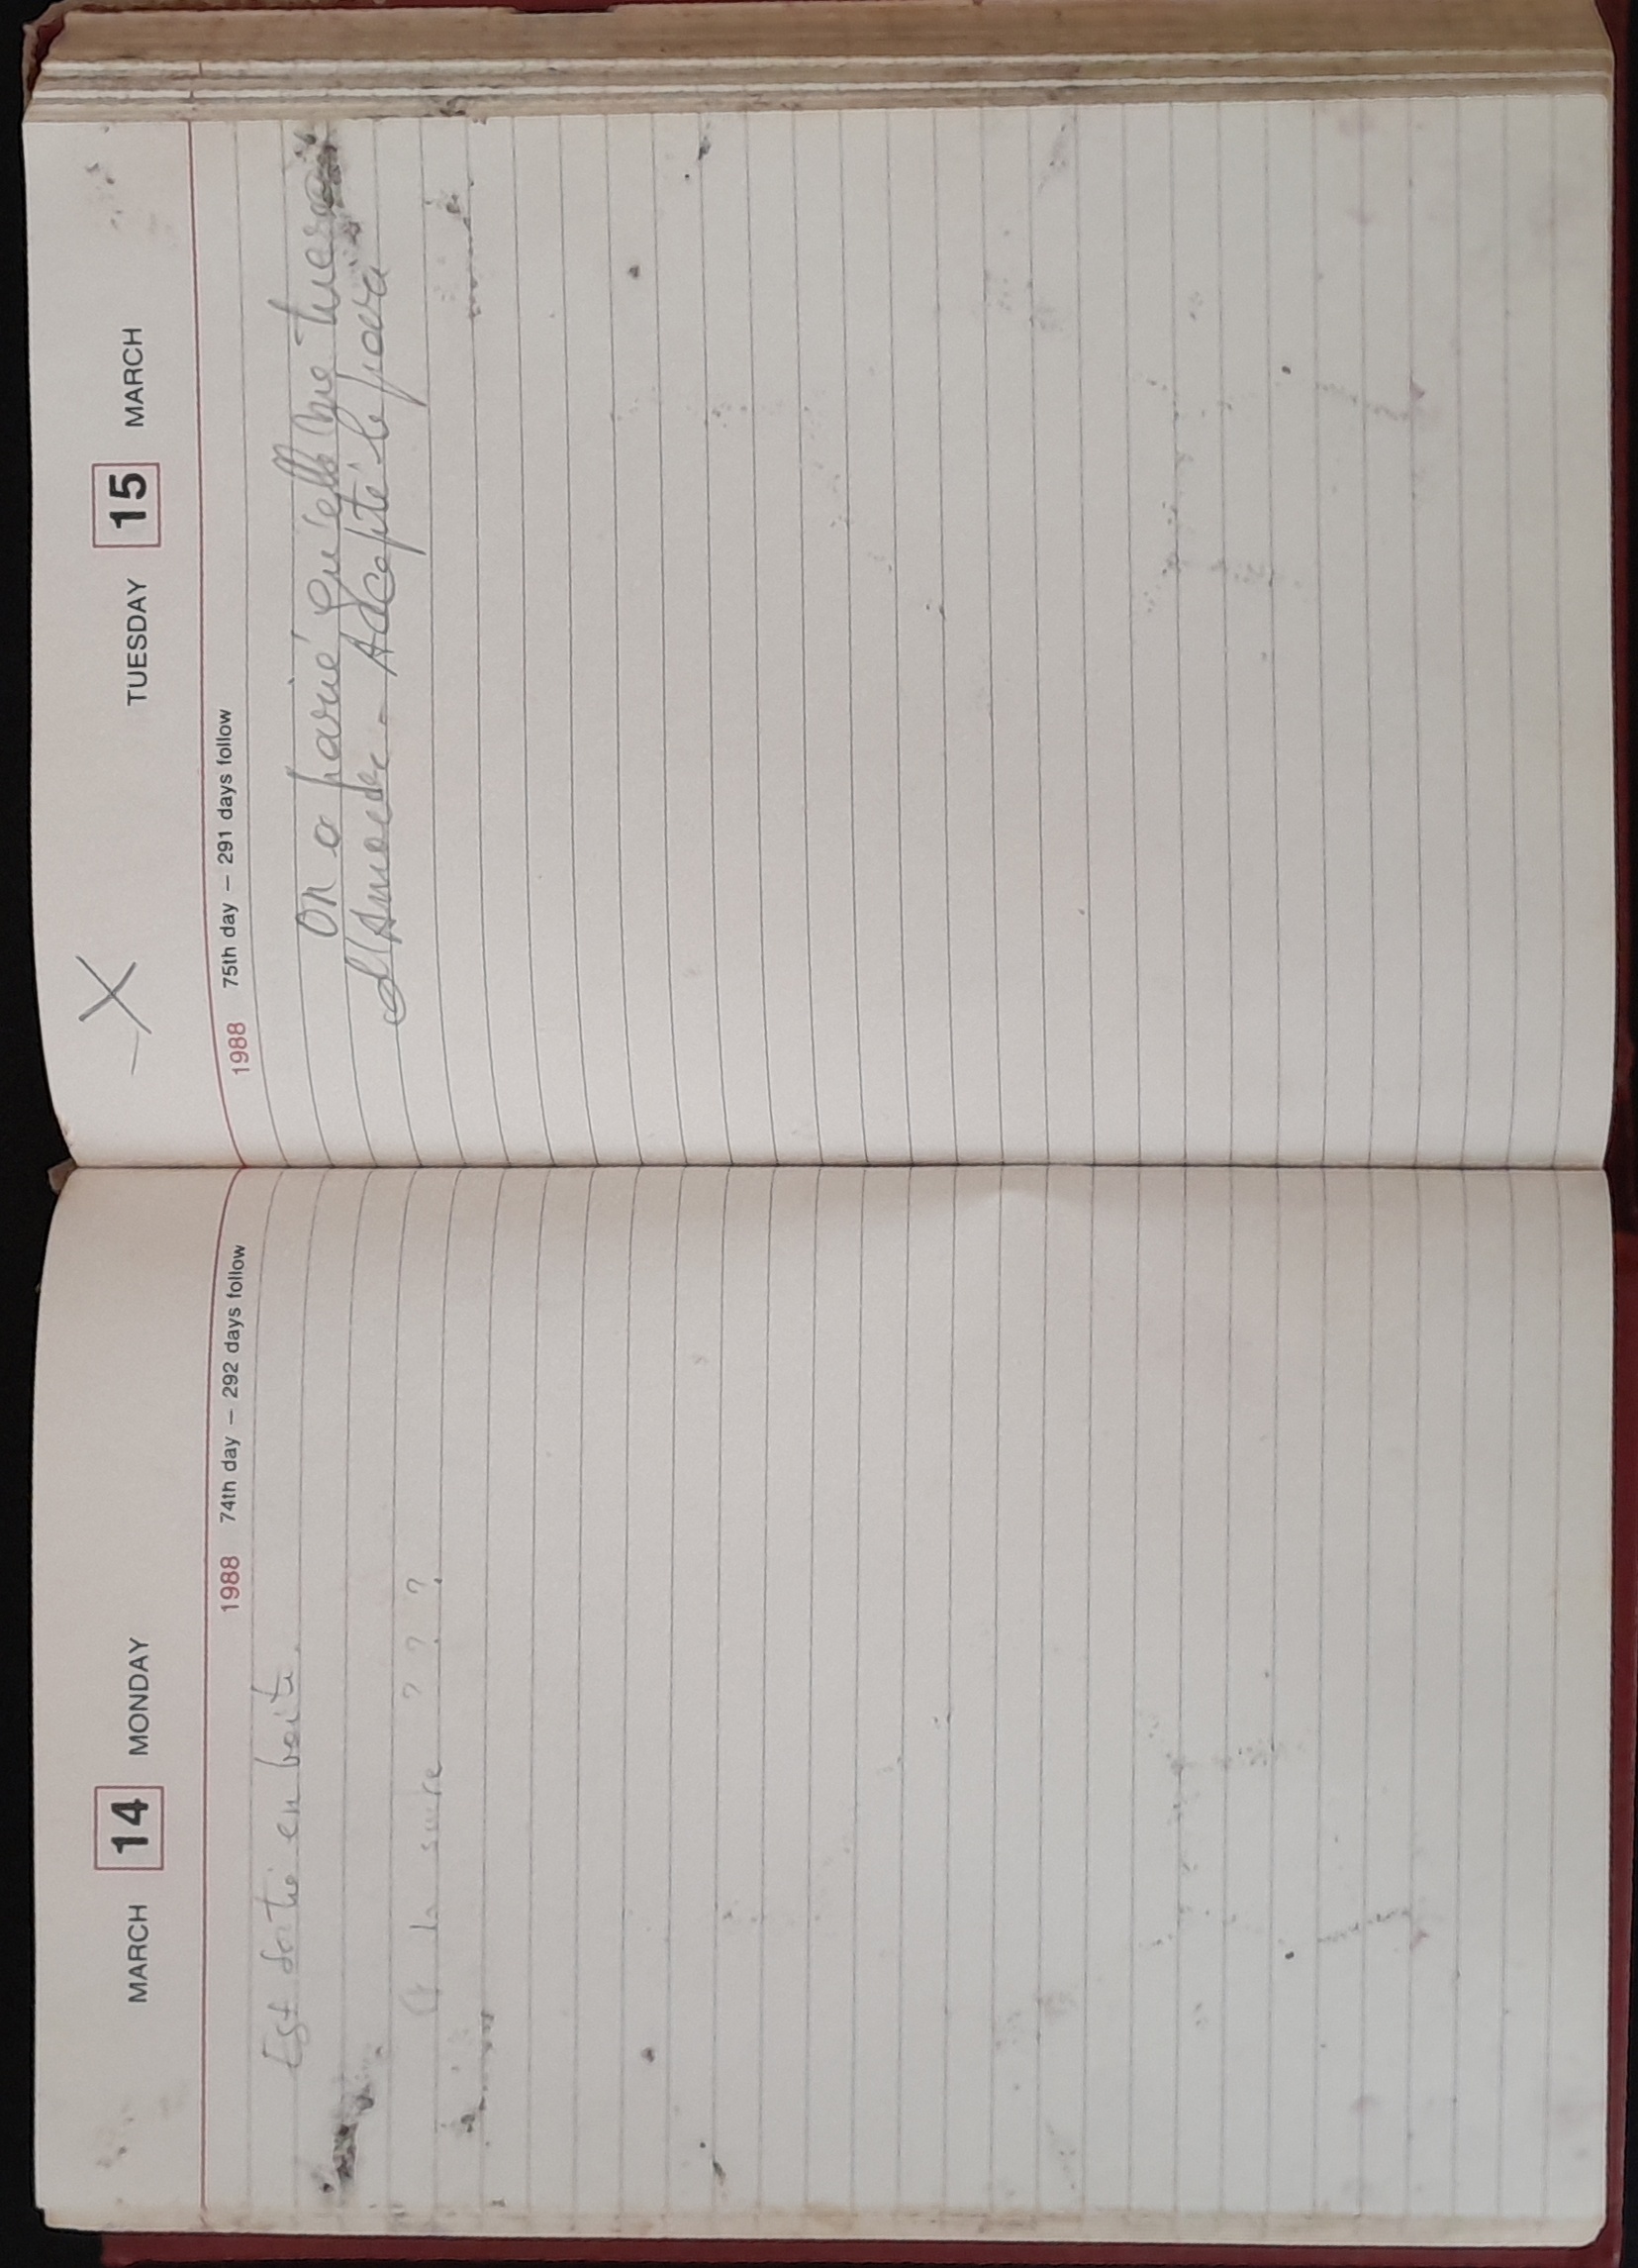 MARCH 14 MONDAY
1988 74th day – 292 days follow
Est sortie en boite.
Et la suite ? ? ?
TUESDAY 15 MARCH
1988 75th day – 291 days follow
On a parié qu'elle me tuera
d'Amour. Accepté le pari